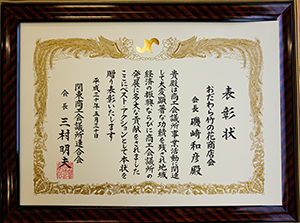 表彰状
おだわら竹の花商店会
会長 磯崎和彦殿
貴殿は商工会議所事業活動に関連
して大変顕著な功績を残され地域
経済の振興ならびに商工会議所の
発展に多大な貢献をされました
ここにベストアクションとして本状を
贈り表彰いたします
平成三十年五月三十日
関東商工会議所連合会
会長 三村明夫